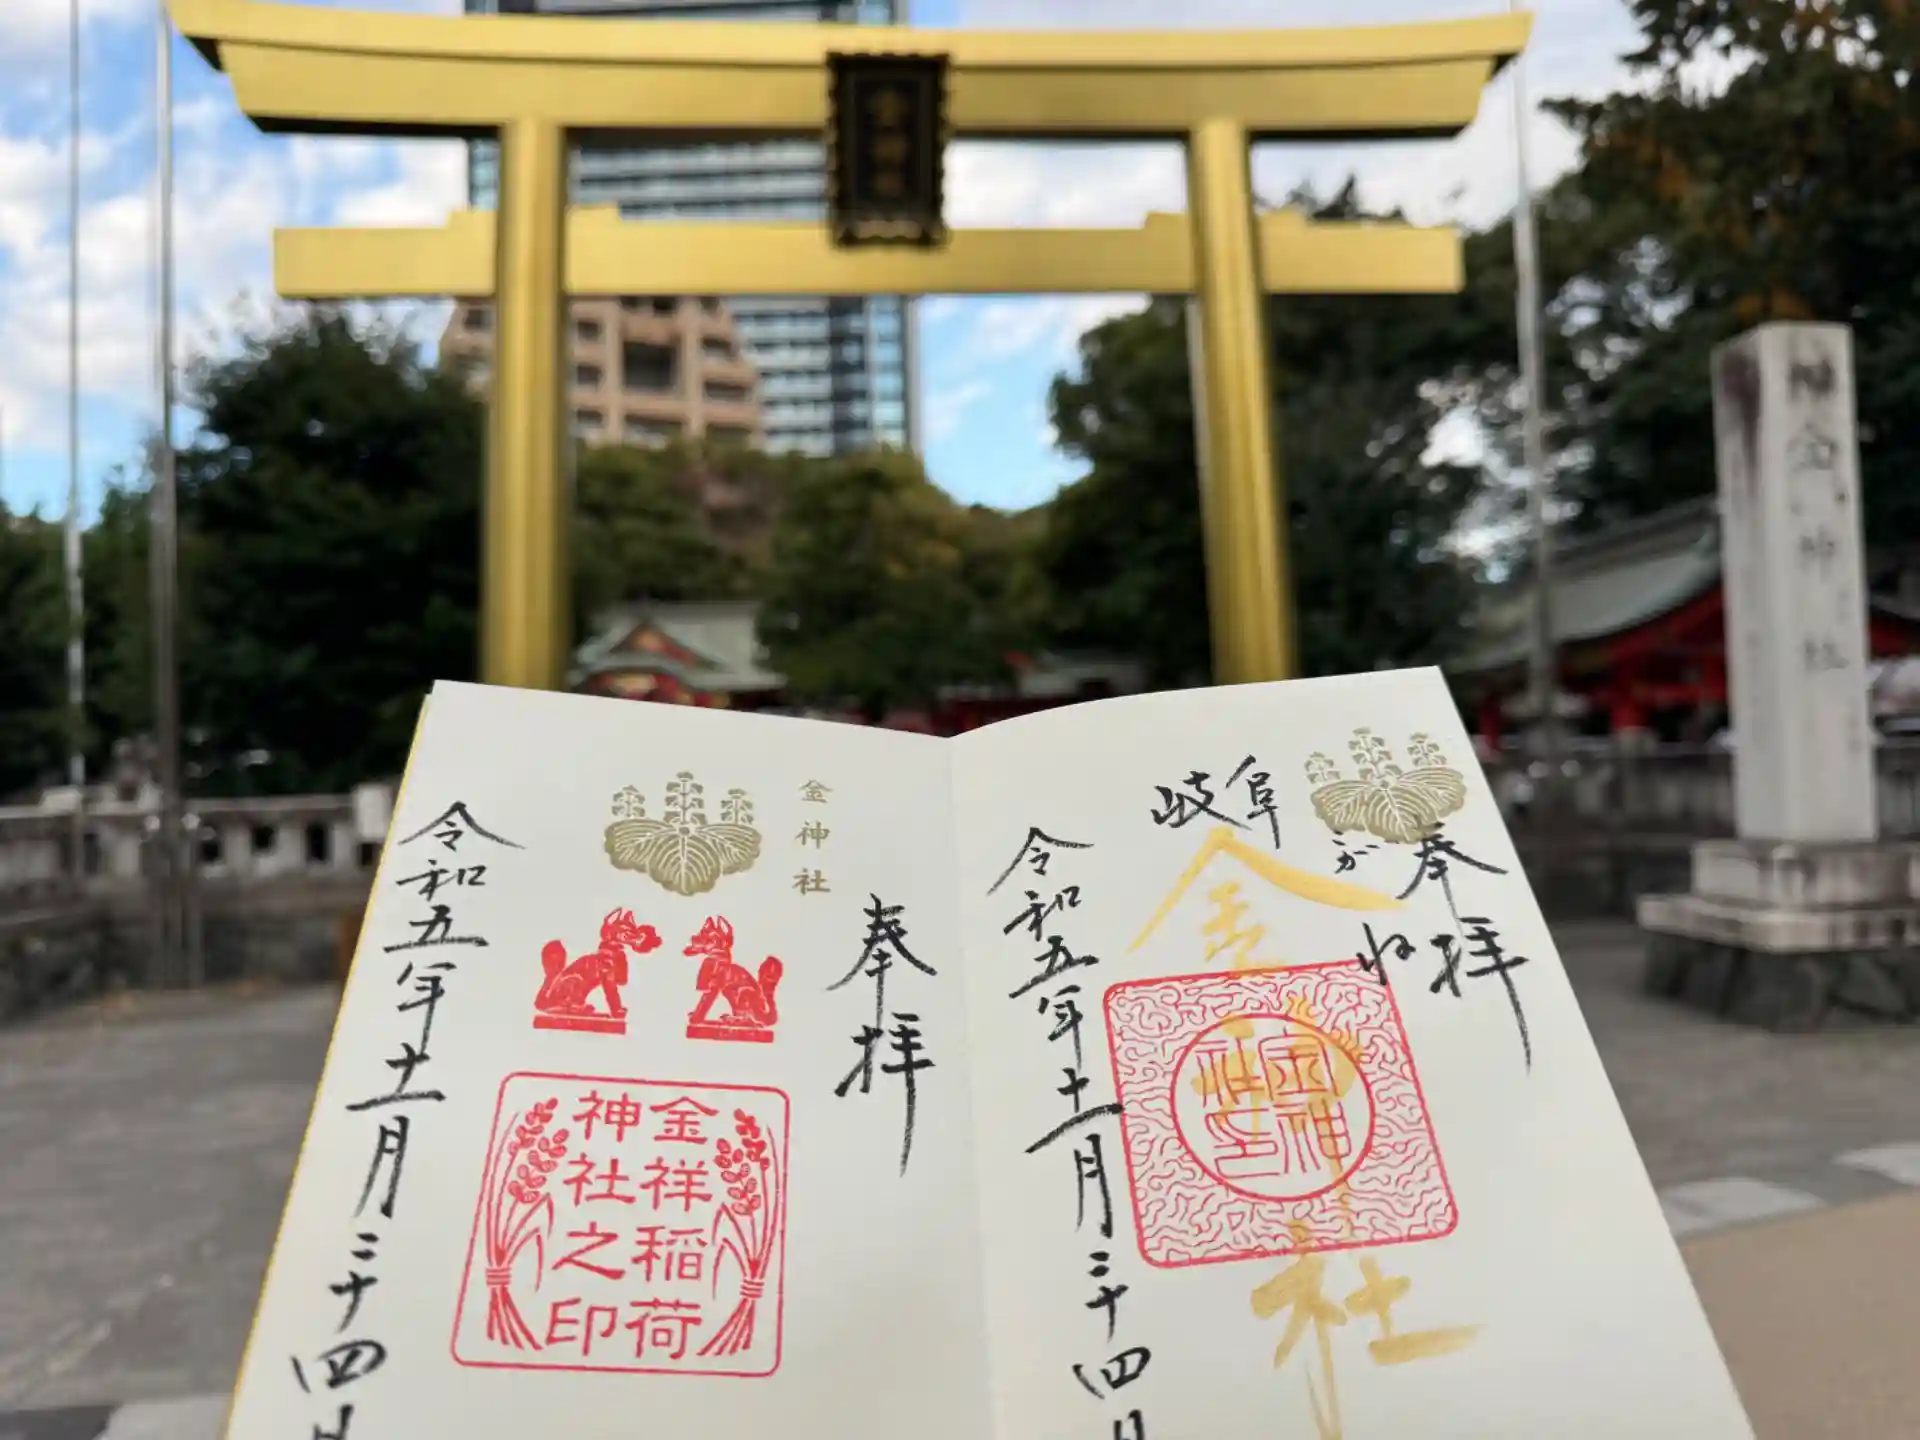 金神社
奉拝
岐阜
こがね
金神社
金神
社印
令和五年十一月二十四日
金神社
奉拝
金祥稲荷
神社之印
令和五年十一月二十四日